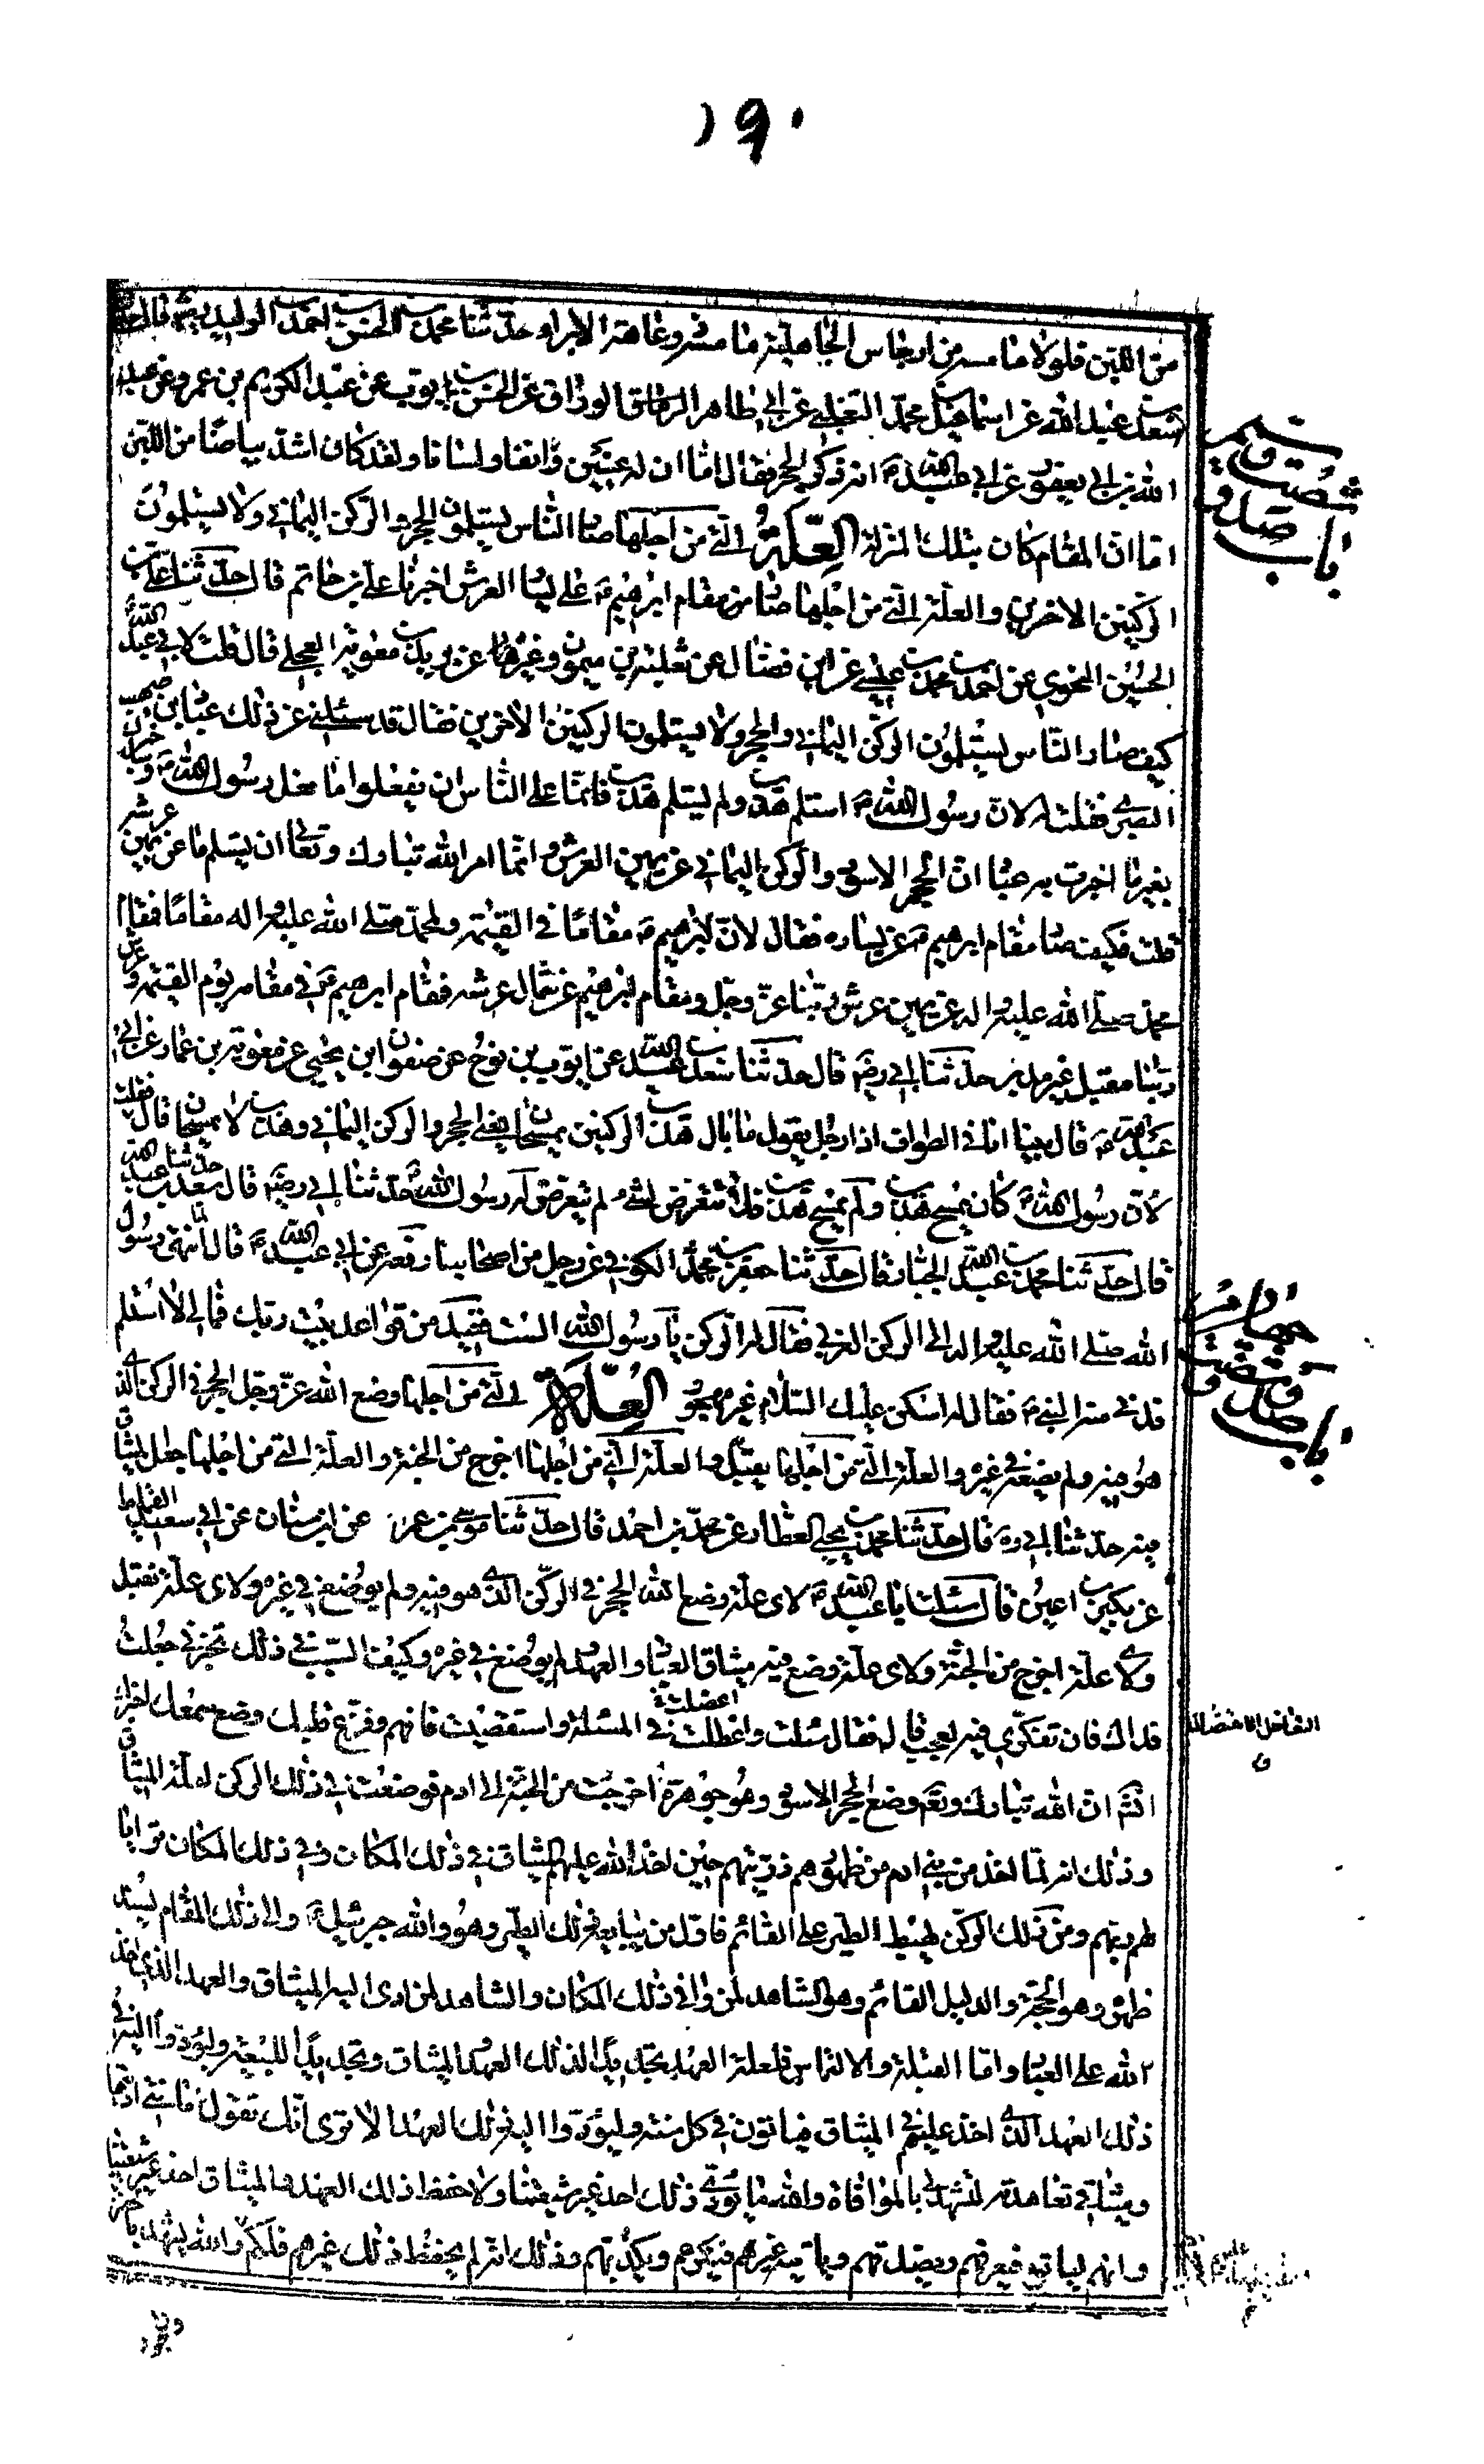 ١٩٠
من اللبن فلولا ما مسه من ارجاس الجاهلية ما مسه ذو عاهة الا برأ حدثنا محمد بن الحسن بن احمد بن الوليد ره قال حدثنا
سعد بن عبد الله عن اسماعيل بن محمد التغلبي عن ابي طاهر الوراق عن الحسن بن ايوب عن عبد الكريم بن عمرو عن عبد
الله بن ابي يعفور عن ابي عبد الله ع انه ذكر الحجر فقال اما ان له عينين وانفا ولسانا ولقد كان اشد بياضا من اللبن
اما ان المقام كان بتلك المنزلة العلة التي من اجلها صار الناس يستلمون الحجر والركن اليماني ولا يستلمون
الركنين الاخرين والعلة التي من اجلها صار مقام ابرهيم ع على يسار العرش اخبرنا علي بن حاتم قال حدثنا علي بن
الحسين النحوي عن احمد بن محمد بن عيسى عن ابن فضال عن ثعلبة بن ميمون وغيره عن بريد بن معوية العجلي قال قلت لابي عبد الله
كيف صار الناس يستلمون الركن اليماني والحجر ولا يستلمون الركنين الاخرين فقال قد سئلني عن ذلك عباد بن صهيب
البصري فقلت له لان رسول الله ص استلم هذين ولم يستلم هذين فانما على الناس ان يفعلوا ما فعل رسول الله ص وساخبرك
بغير ما اخبرت به عباد ان الحجر الاسود والركن اليماني عن يمين العرش وانما امر الله تبارك وتعالى ان يستلم ما عن يمين عرشه
قلت فكيف صار مقام ابرهيم ع عن يساره فقال لان لابرهيم ع مقاما في القيمة ولمحمد صلى الله عليه واله مقاما فمقام
محمد صلى الله عليه واله عن يمين عرش ربنا عز وجل ومقام ابرهيم عن شمال عرشه فمقام ابرهيم ع في مقامه يوم القيمة وعرش
ربنا مقبل غير مدبر حدثنا ابي رضه قال حدثنا سعد بن عبد الله عن ايوب بن نوح عن صفوان ابن يحيى عن معوية بن عمار عن ابي
عبد الله ع قال بينا انا في الطواف اذا رجل يقول ما بال هذين الركنين يمسحان يعني الحجر والركن اليماني وهذين لا يمسحان قال فقلت
لان رسول الله ص كان يمسح هذين ولم يمسح هذين فلا تتعرض لشيء لم يتعرض له رسول الله ص حدثنا ابي رضه قال حدثنا سعد بن عبد الله
قال حدثنا محمد بن عبد الجبار قال حدثنا جعفر بن محمد الكوفي عن رجل من اصحابنا رفعه عن ابي عبد الله ع قال لما انتهى رسول
الله صلى الله عليه واله الى الركن الغربي فقال له الركن يا رسول الله الست قعيد من قواعد بيت ربك فمالي لا استلم
فدنى منه النبي ص فقال له اسكن عليك السلام غير مهجور العلة التي من اجلها وضع الله عز وجل الحجر في الركن الذي
هو فيه ولم يضعه في غيره والعلة التي من اجلها يقبل والعلة التي من اجلها اخرج من الجنة والعلة التي من اجلها جعل الميثاق
فيه حدثنا ابي ره قال حدثنا محمد بن يحيى العطار عن محمد بن احمد قال حدثنا موسى بن عمر عن ابن سنان عن ابي سعيد القماط
عن بكير بن اعين قال سئلت ابا عبد الله ع لاى علة وضع الله الحجر في الركن الذي هو فيه ولم يوضع في غيره ولاى علة تقبل
ولاى علة اخرج من الجنة ولاى علة وضع فيه ميثاق العباد والعهد ولم يوضع في غيره وكيف السبب في ذلك تخبرني جعلت
فداك فان تفكري فيه لعجب قال فقال سئلت واعضلت في المسئلة واستقصيت فافهم وفرغ قلبك واصغ سمعك اخبرك
انشم ان الله تبارك وتعالى وضع الحجر الاسود وهو جوهرة اخرجت من الجنة الى ادم فوضعت في ذلك الركن لعلة الميثاق
وذلك انه لما اخذ من بني ادم من ظهورهم ذريتهم حين اخذ الله عليهم الميثاق في ذلك المكان وفي ذلك المكان ترايا
لهم ربهم ومن ذلك الركن يهبط الطير على القائم فاول من يبايعه ذلك الطير وهو والله جبرئيل ع والى ذلك المقام يسند
ظهره وهو الحجة والدليل القائم وهو الشاهد لمن وافى ذلك المكان والشاهد لمن ادى اليه الميثاق والعهد الذي اخذ
الله على العباد واما القبلة والالتماس فلعلة العهد تجديدا لذلك العهد والميثاق وتجديدا للبيعة وليؤدوا اليه في
ذلك العهد الذي اخذ عليهم في الميثاق فياتونه في كل سنة وليؤدوا اليه ذلك العهد الا ترى انك تقول امانتي اديتها
وميثاقي تعاهدته لتشهد لي بالموافاة والله ما يؤدي ذلك احد غير شيعتنا ولا حفظ ذلك العهد والميثاق احد غير شيعتنا
وانهم لياتونه فيعرفهم ويصدقهم وياتيه غيرهم فينكرهم ويكذبهم وذلك انه لم يحفظ ذلك غيركم فلكم والله يشهد
باب صد و شصت و سيم
باب صد و شصت و چهارم